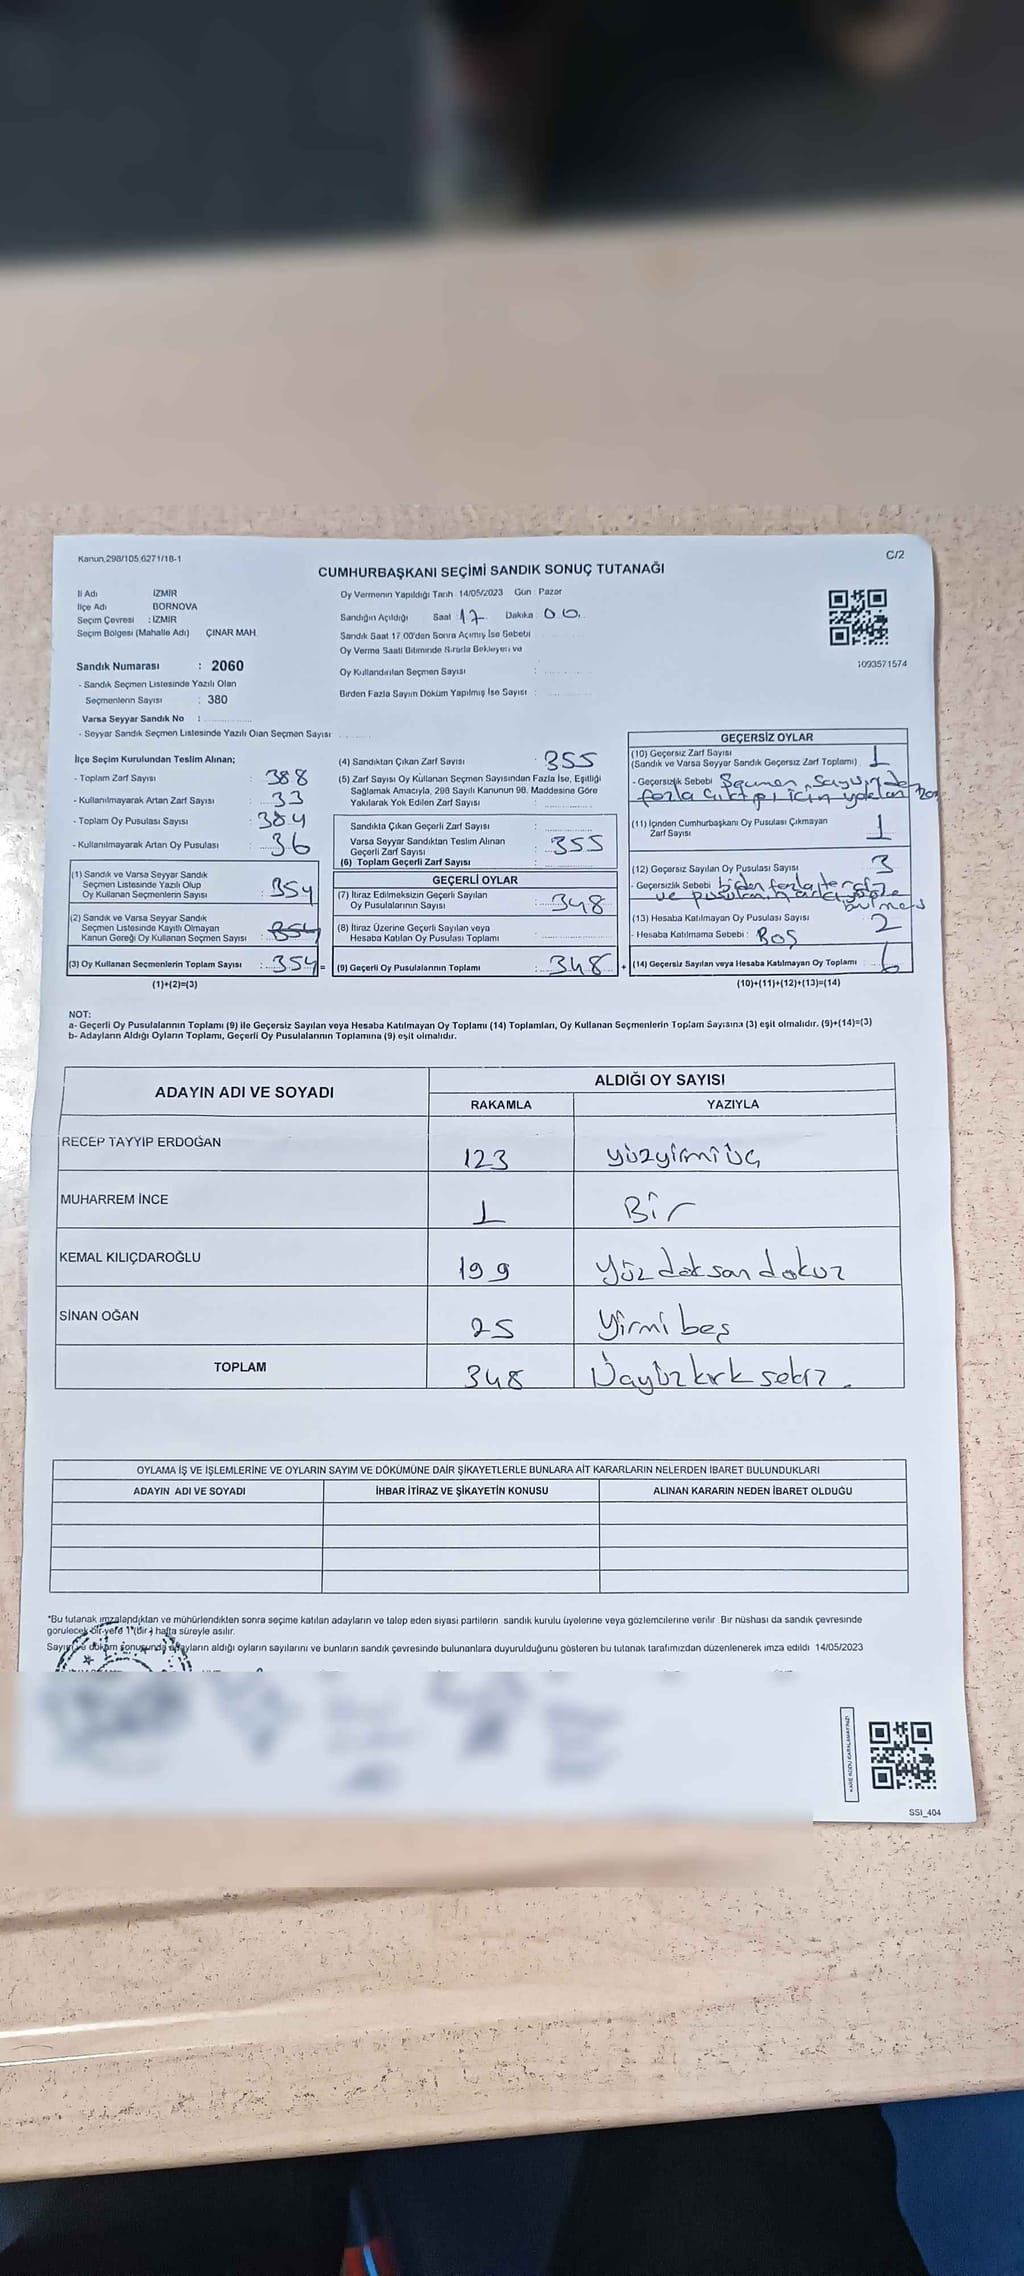 Kanun,298/105,6271/18-1
C/2
CUMHURBAŞKANI SEÇİMİ SANDIK SONUÇ TUTANAĞI
İl Adı İZMİR
İlçe Adı BORNOVA
Seçim Çevresi : İZMİR
Seçim Bölgesi (Mahalle Adı) ÇINAR MAH.
Sandık Numarası : 2060
- Sandık Seçmen Listesinde Yazılı Olan
Seçmenlerin Sayısı : 380
Varsa Seyyar Sandık No :
- Seyyar Sandık Seçmen Listesinde Yazılı Olan Seçmen Sayısı
Oy Vermenin Yapıldığı Tarih 14/05/2023 Gün : Pazar
Sandığın Açıldığı Saat 17 Dakika 00
Sandık Saat 17.00'den Sonra Açılmış İse Sebebi
Oy Verme Saati Bitiminde Sırada Bekleyen ve
Oy Kullandırılan Seçmen Sayısı :
Birden Fazla Sayım Döküm Yapılmış İse Sayısı :
1093571574
İlçe Seçim Kurulundan Teslim Alınan;
- Toplam Zarf Sayısı : 388
- Kullanılmayarak Artan Zarf Sayısı : 33
- Toplam Oy Pusulası Sayısı : 384
- Kullanılmayarak Artan Oy Pusulası : 36
(1) Sandık ve Varsa Seyyar Sandık
Seçmen Listesinde Yazılı Olup
Oy Kullanan Seçmenlerin Sayısı : 354
(2) Sandık ve Varsa Seyyar Sandık
Seçmen Listesinde Kayıtlı Olmayan
Kanun Gereği Oy Kullanan Seçmen Sayısı : 354
(3) Oy Kullanan Seçmenlerin Toplam Sayısı : 354 =
(1)+(2)=(3)
(4) Sandıktan Çıkan Zarf Sayısı : 355
(5) Zarf Sayısı Oy Kullanan Seçmen Sayısından Fazla İse, Eşitliği
Sağlamak Amacıyla, 298 Sayılı Kanunun 98. Maddesine Göre
Yakılarak Yok Edilen Zarf Sayısı :
Sandıkta Çıkan Geçerli Zarf Sayısı :
Varsa Seyyar Sandıktan Teslim Alınan
Geçerli Zarf Sayısı : 355
(6) Toplam Geçerli Zarf Sayısı :
GEÇERLİ OYLAR
(7) İtiraz Edilmeksizin Geçerli Sayılan
Oy Pusulalarının Sayısı : 348
(8) İtiraz Üzerine Geçerli Sayılan veya
Hesaba Katılan Oy Pusulası Toplamı :
(9) Geçerli Oy Pusulalarının Toplamı : 348 +
GEÇERSİZ OYLAR
(10) Geçersiz Zarf Sayısı
(Sandık ve Varsa Seyyar Sandık Geçersiz Zarf Toplamı) : 1
- Geçersizlik Sebebi Seçmen sayısından
fazla çıktığı için
(11) İçinden Cumhurbaşkanı Oy Pusulası Çıkmayan
Zarf Sayısı 1
(12) Geçersiz Sayılan Oy Pusulası Sayısı : 3
- Geçersizlik Sebebi : birden fazla tercih
ve pusulanın
(13) Hesaba Katılmayan Oy Pusulası Sayısı : 2
- Hesaba Katılmama Sebebi : Boş
(14) Geçersiz Sayılan veya Hesaba Katılmayan Oy Toplamı : 6
(10)+(11)+(12)+(13)=(14)
NOT:
a- Geçerli Oy Pusulalarının Toplamı (9) ile Geçersiz Sayılan veya Hesaba Katılmayan Oy Toplamı (14) Toplamları, Oy Kullanan Seçmenlerin Toplam Sayısına (3) eşit olmalıdır. (9)+(14)=(3)
b- Adayların Aldığı Oyların Toplamı, Geçerli Oy Pusulalarının Toplamına (9) eşit olmalıdır.
ADAYIN ADI VE SOYADI
ALDIĞI OY SAYISI
RAKAMLA YAZIYLA
RECEP TAYYIP ERDOĞAN 123 yüzyirmi üç
MUHARREM İNCE 1 Bir
KEMAL KILIÇDAROĞLU 199 yüz doksan dokuz
SİNAN OĞAN 25 yirmi beş
TOPLAM 348 Üçyüz kırk sekiz.
OYLAMA İŞ VE İŞLEMLERİNE VE OYLARIN SAYIM VE DÖKÜMÜNE DAİR ŞİKAYETLERLE BUNLARA AİT KARARLARIN NELERDEN İBARET BULUNDUKLARI
ADAYIN ADI VE SOYADI İHBAR İTİRAZ VE ŞİKAYETİN KONUSU ALINAN KARARIN NEDEN İBARET OLDUĞU
*Bu tutanak imzalandıktan ve mühürlendikten sonra seçime katılan adayların ve talep eden siyasi partilerin sandık kurulu üyelerine veya gözlemcilerine verilir. Bir nüshası da sandık çevresinde
görülecek bir yere 1 (bir) hafta süreyle asılır.
Sayım ve döküm sonusunda adayların aldığı oyların sayılarını ve bunların sandık çevresinde bulunanlara duyurulduğunu gösteren bu tutanak tarafımızdan düzenlenerek imza edildi 14/05/2023
KARE KODU KARALAMAYINIZ!
SSI_404